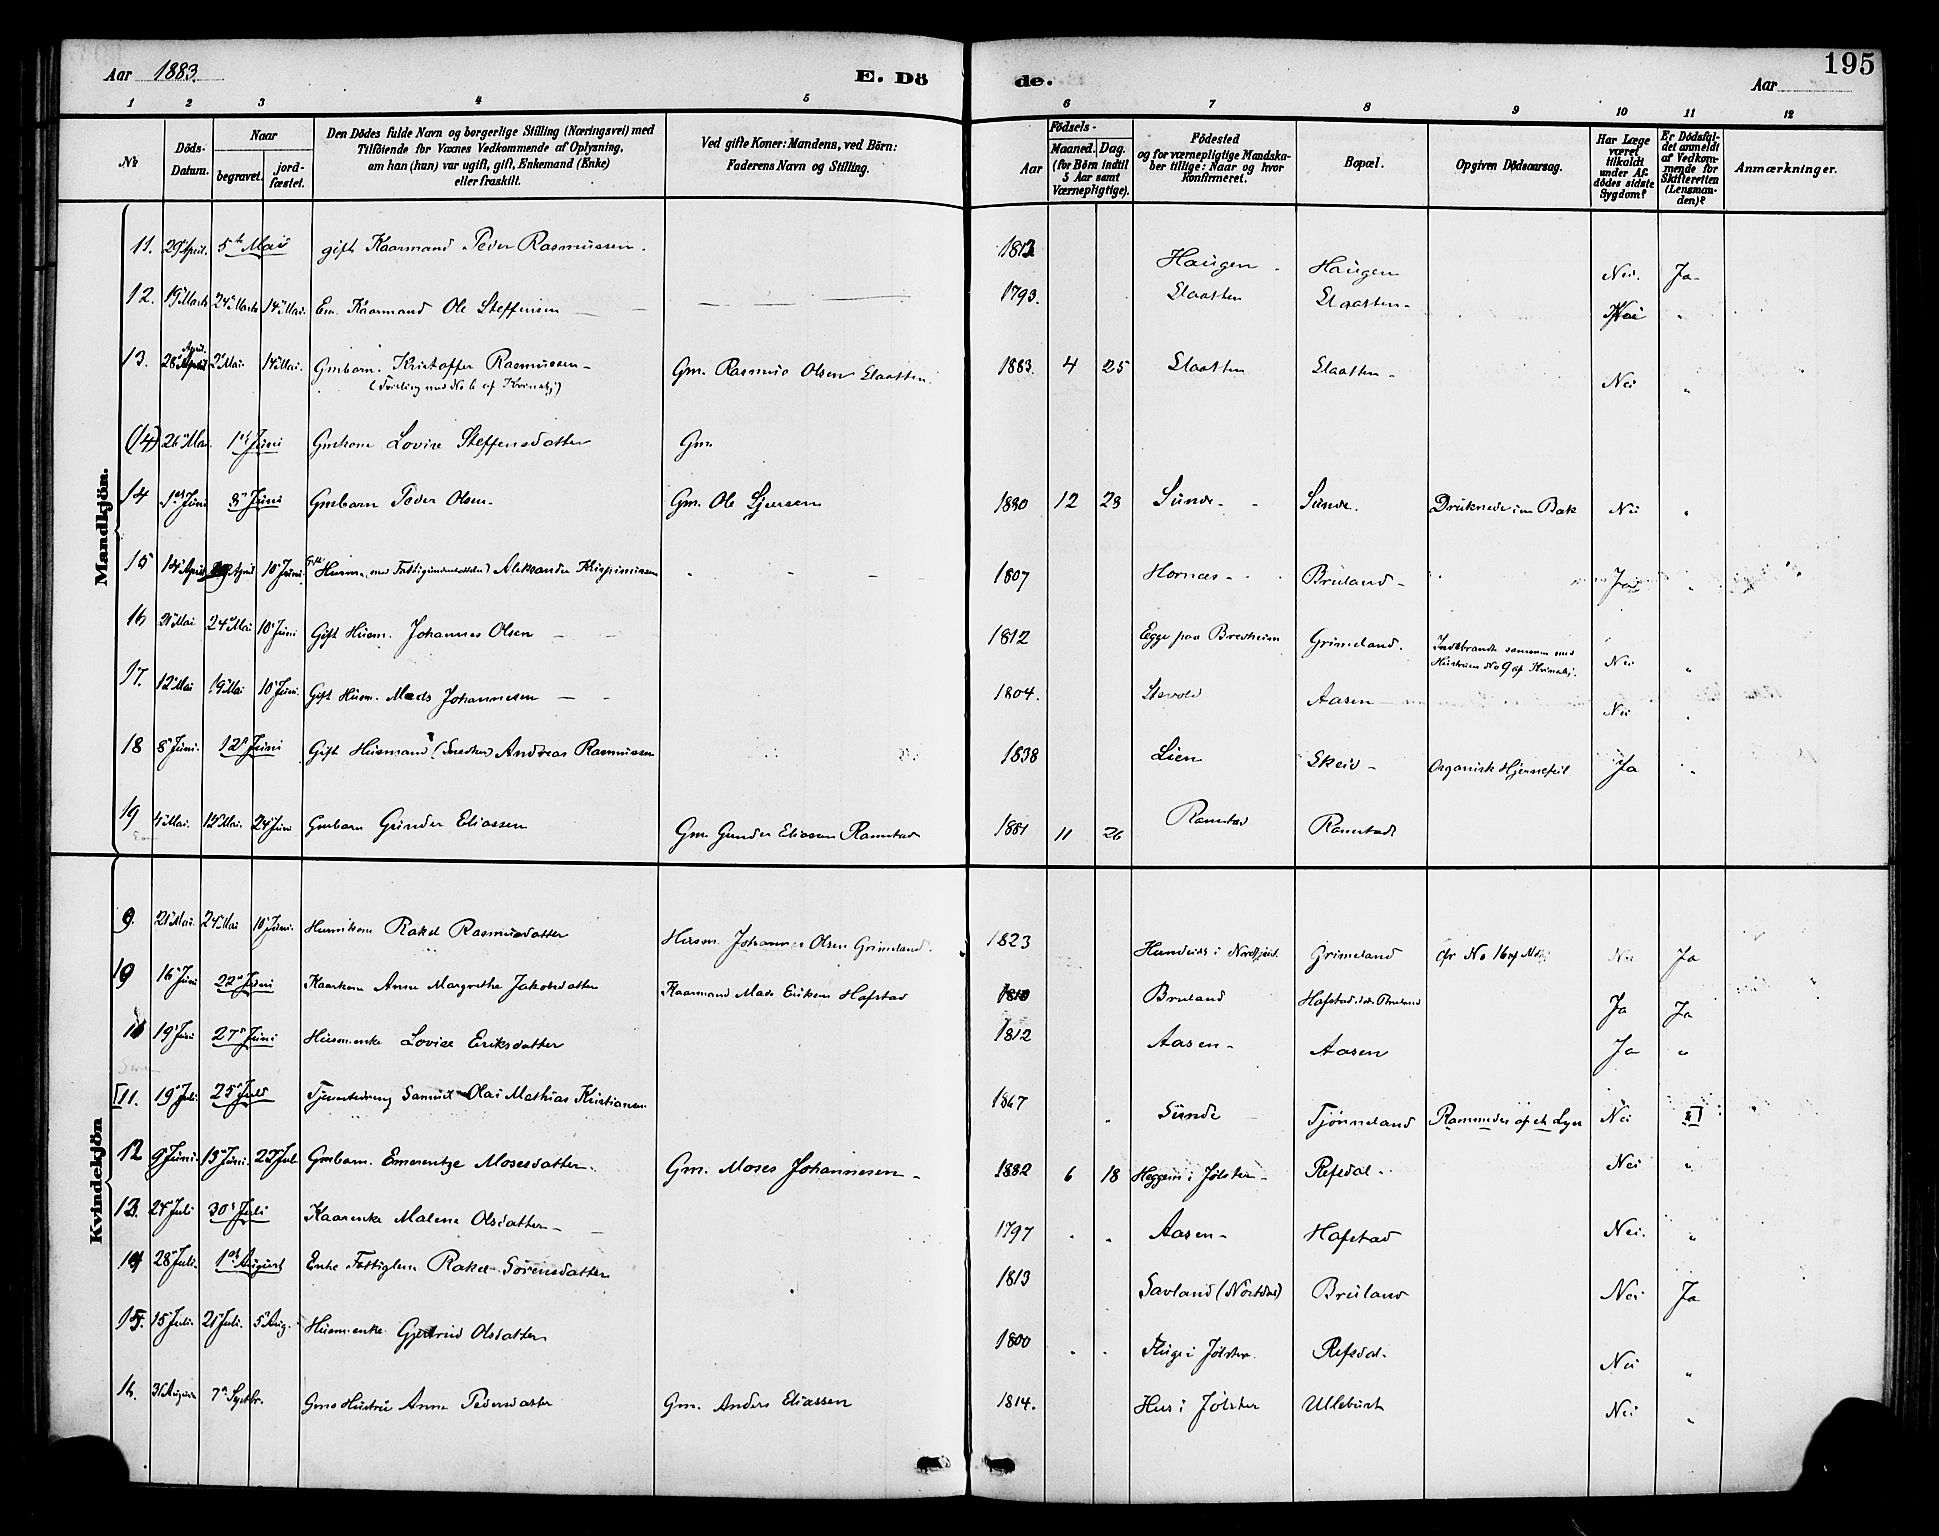 Aar 1883.
E. Dö
de.
Aar
195
1 2 3 4 5 6 7 8 9 10 11 12
No
Döds-
Datum.
Naar
begravet.
jord-
fæstet.
Den Dödes fulde Navn og borgerlige Stilling (Næringsvei) med
Tilföiende for Voxnes Vedkommende af Oplysning,
om han (hun) var ugift, gift, Enkemand (Enke)
eller fraskilt.
Ved gifte Koner: Mandens, ved Börn:
Faderens Navn og Stilling.
Födsels-
Aar
Maaned.
Dag.
(for Börn indtil
5 Aar samt
Værnepligtige).
Födested
og for værnepligtige Mandska-
ber tillige: Naar og hvor
konfirmeret.
Bopæl.
Opgiven Dödsaarsag.
Har Læge
været
tilkaldt
under Af-
dödes sidste
Sygdom?
Er Dödsfal-
det anmeldt
af Vedkom-
mende for
Skifteretten
(Lensman-
den)?
Anmærkninger.
Mandkjön.
11. 29 April. 5te Mai gift Kaarmand Peder Rasmussen. 1813 Haugen Haugen Nei. Ja
12. 19 Marts 24 Marts 14 Mai. Em. Kaarmand Ole Steffensen 1793. Slaatten Slaatten Nei "
13. 28 April 2 Mai 14 Mai. Gmbarn. Kristoffer Rasmussen
Gm. Rasmus Olsen Slaatten. 1883. 4 25 Slaatten Slaatten Nei "
(14) 26 Mai 1ste Juni Gmkone Lovise Steffensdatter Gm.
14 1ste Juni 8 Juni Gmbarn Peder Olsen Gm. Ole 1880 12 23 Sunde Sunde. Druknede i en Bæk Nei "
15 14 April April 10 Juni Gift Husm. Aleksander Krispinussen 1807 Hornæs Bruland Ja "
16 21 Mai 24 Mai 10 Juni Gift Husm. Johannes Olsen 1812 Egge paa Bredheim Grimeland. Indebrændte sammen med
Hustruen No 9 af Kvindekj. Nei "
17. 12 Mai 19 Mai 10 Juni. Gift Husm. Mads Johannesen 1804. Aasen Nei "
18 8 Juni. 12 Juni Gift Husmand (Snedker) Andreas Rasmussen 1838 Lien Skeid Organisk Hjernefeil Ja "
19 4 Mai. 12 Mai. 24 Juni Gmbarn Gunder Eliassen Gm. Gunder Eliassen Ramstad 1881 11 26 Ramstad Ramstad
Kvindekjön
9. 21 Mai. 24 Mai 10 Juni. Husmkone Rakel Rasmusdatter Husm. Johannes Olsen Grimeland. 1823 i Nordfjord. Grimeland cfr No 16 af Mdkj. Nei Ja
10 16 Juni 22 Juni Kaarkone Anne Margrethe Jakobsdatter Kaarmand Mads Eriksen Hafstad 1810 Bruland Hafstad, Bruland Ja Ja
11 19 Juni 27 Juni Husm.enke Lovise Eriksdatter 1812 Aasen Aasen Ja "
[11. 19 Juli 25 Juli Tjenestedreng Samuel Olai Mathias Kristiansen 1867 " Sunde Tjønneland Rammedes af et Lyn Nei "]
12 9 Juni. 13 Juni. 22 Juli Gmbarn. Emerentze Mosesdatter. Gm. Moses Johannesen 1882 6 18 Heggem i Jølster Refsdal Nei "
13. 24 Juli 30 Juli Kaarenke Malene Olsdatter 1797 " " Aasen Hafstad Nei. "
14 28 Juli. 1ste August Enke Fattiglem Rakel Sørensdatter 1813 Savland Bruland Nei Ja
15. 15 Juli. 21 Juli. 5 Aug. Husm.enke Gjertrud Olsdatter 1800 " " Fluge i Jølster. Refsdal. Nei "
16. 31 August 7 Septbr. Gms Hustru Anne Pedersdatter Gm. Anders Eliassen 1814. Hus i Jølster Ullebust Nei "